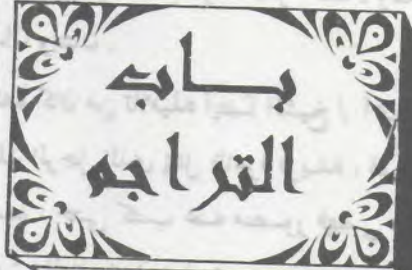 باب
التراجم